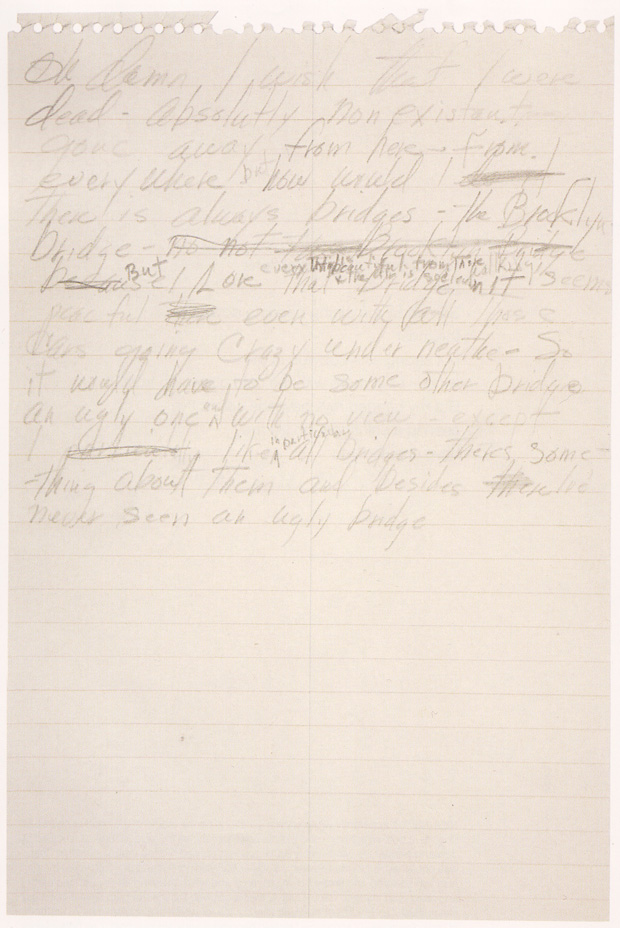 Oh damn I wish that I were
dead - absolutly nonexistant -
gone away from here - from
everywhere but how would I
There is always bridges - the Brooklyn
bridge - no not the Brooklyn Bridge
because But I Love that bridge everything is beautiful from there & the air is so clean In It seems
peaceful there even with all those
cars going crazy underneathe - So
it would have to be some other bridge
an ugly one and with no view - except
I particularly like in particular all bridges - theres some-
thing about them and besides these I've
never seen an ugly bridge